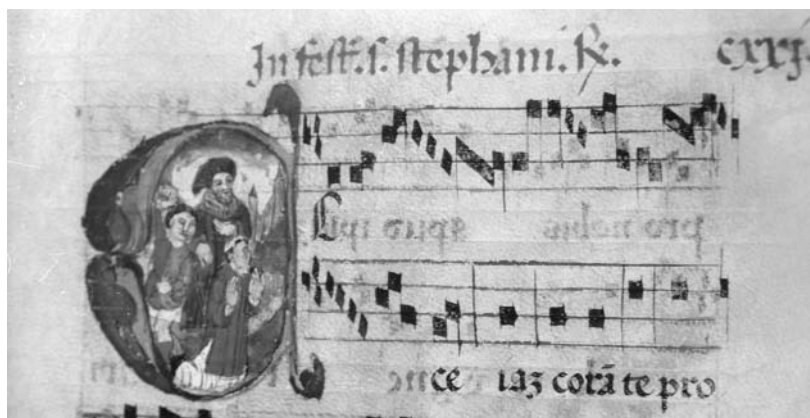 In fest. s. stephani. ℟. cxxj.
E
L
ce iaz corā te pro